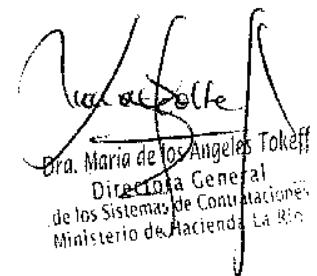 Dra. Maria de los Angeles Tokeff
Directora General
de los Sistemas de Contrataciones
Ministerio de Hacienda La